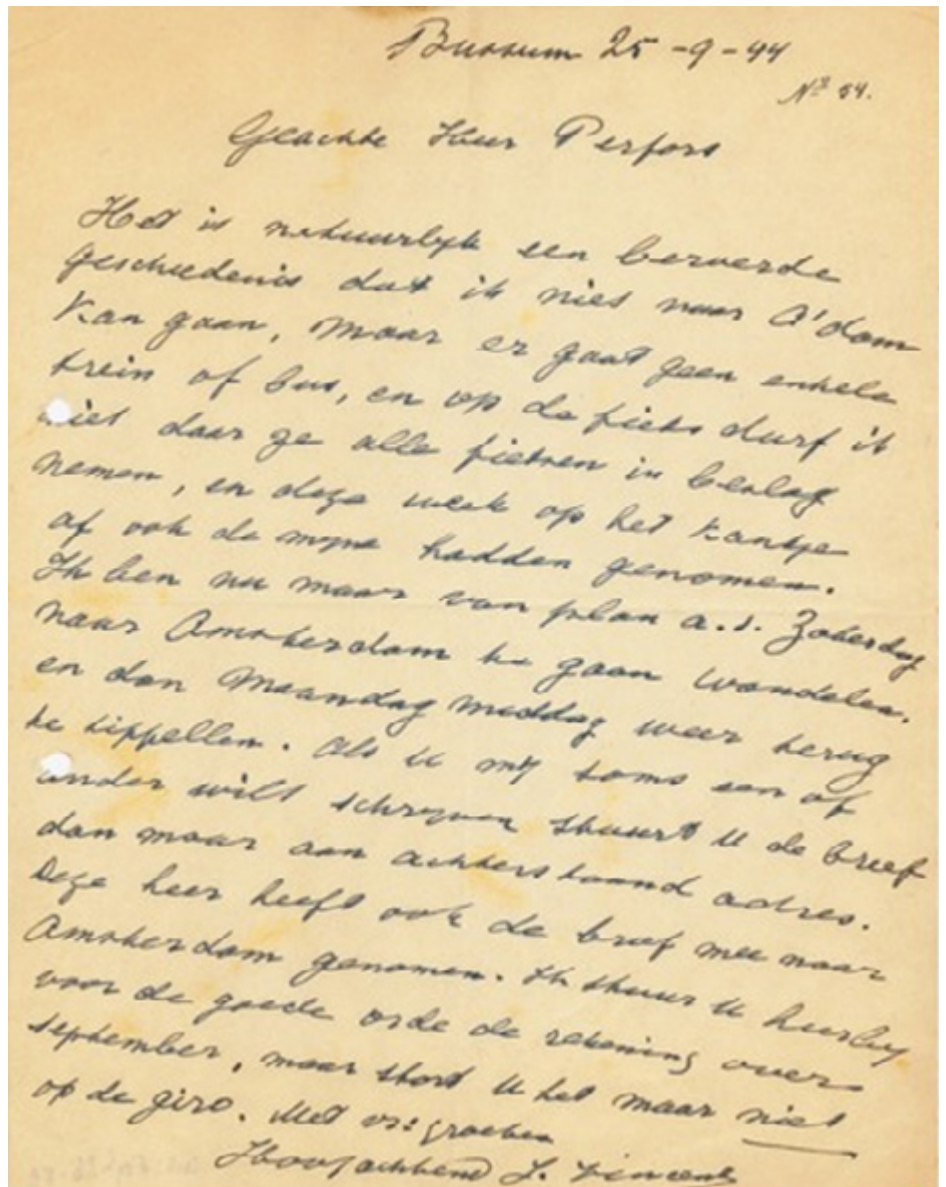 Bussum 25-9-44
No 54.
Geachte Heer Perfors
Het is natuurlyk een beroerde
geschiedenis dat ik niet naar A'dam
kan gaan, maar er gaat geen enkele
trein of bus, en op de fiets durf ik
niet daar ze alle fietsen in beslag
nemen, en deze week op het kantje
af ook de myne hadden genomen.
Ik ben nu maar van plan a.s. Zaterdag
naar Amsterdam te gaan wandelen.
en dan Maandag middag weer terug
te tippellen. Als u my soms een of
ander wilt schryven stuurt u de brief
dan maar aan achterstaand adres.
Deze heer heeft ook de brief mee naar
Amsterdam genomen. Ik stuur u hierby
voor de goede orde de rekening over
september, maar stort u het maar niet
op de giro. Met vr: groeten
Hoogachtend J.